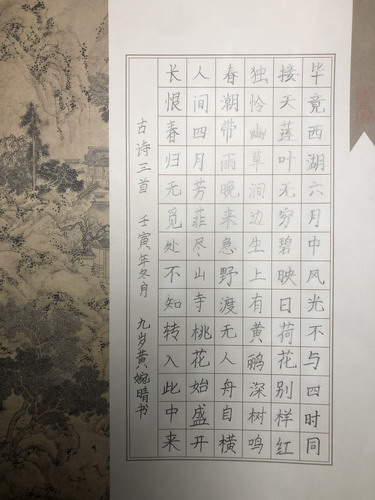 毕竟西湖六月中风光不与四时同
接天莲叶无穷碧映日荷花别样红
独怜幽草涧边生上有黄鹂深树鸣
春潮带雨晚来急野渡无人舟自横
人间四月芳菲尽山寺桃花始盛开
长恨春归无觅处不知转入此中来
古诗三首 壬寅年冬月 九岁黄婉晴书